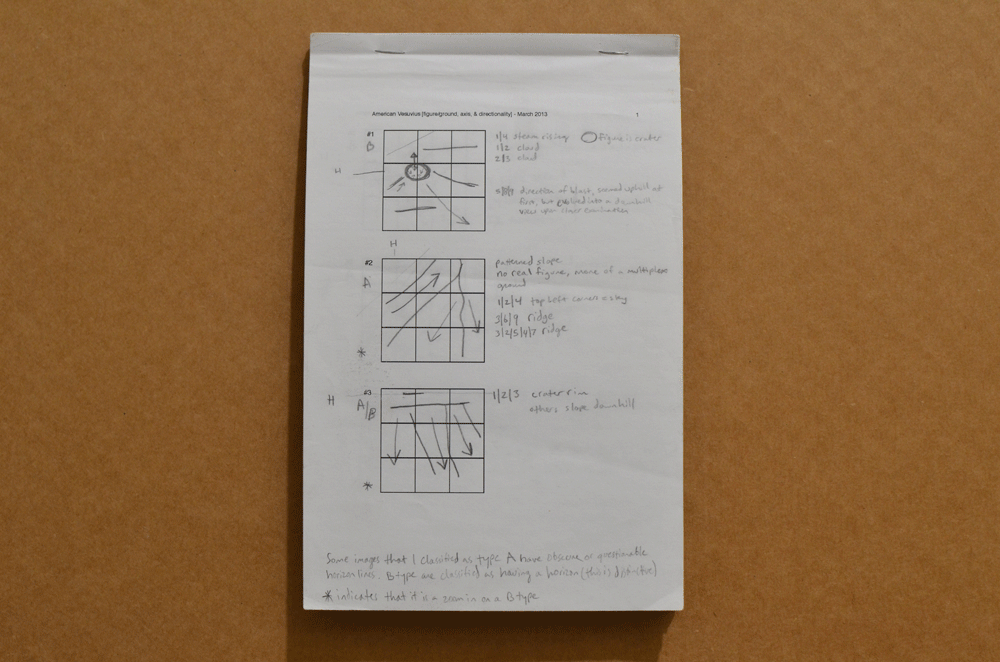 American Vesuvius [figure/ground, axis, & directionality] - March 2013 1
#1
B
H
1/4 steam rising figure is crater
1/2 cloud
2/3 cloud
direction of blast, seemed uphill at
first, but evolved into a downhill
view upon closer examination
H
#2
A
*
patterned slope
no real figure, more of a multiplane
ground
1/2/4 top left corner
3/6/9 ridge
3/2/5/4/7 ridge
#3
H A/B
*
1/2/3 crater rim
others slope downhill
Some images that I classified as type A have obscure or questionable
horizon lines. B type are classified as having a horizon (that is definitive)
* indicates that it is a zoom in on a B type